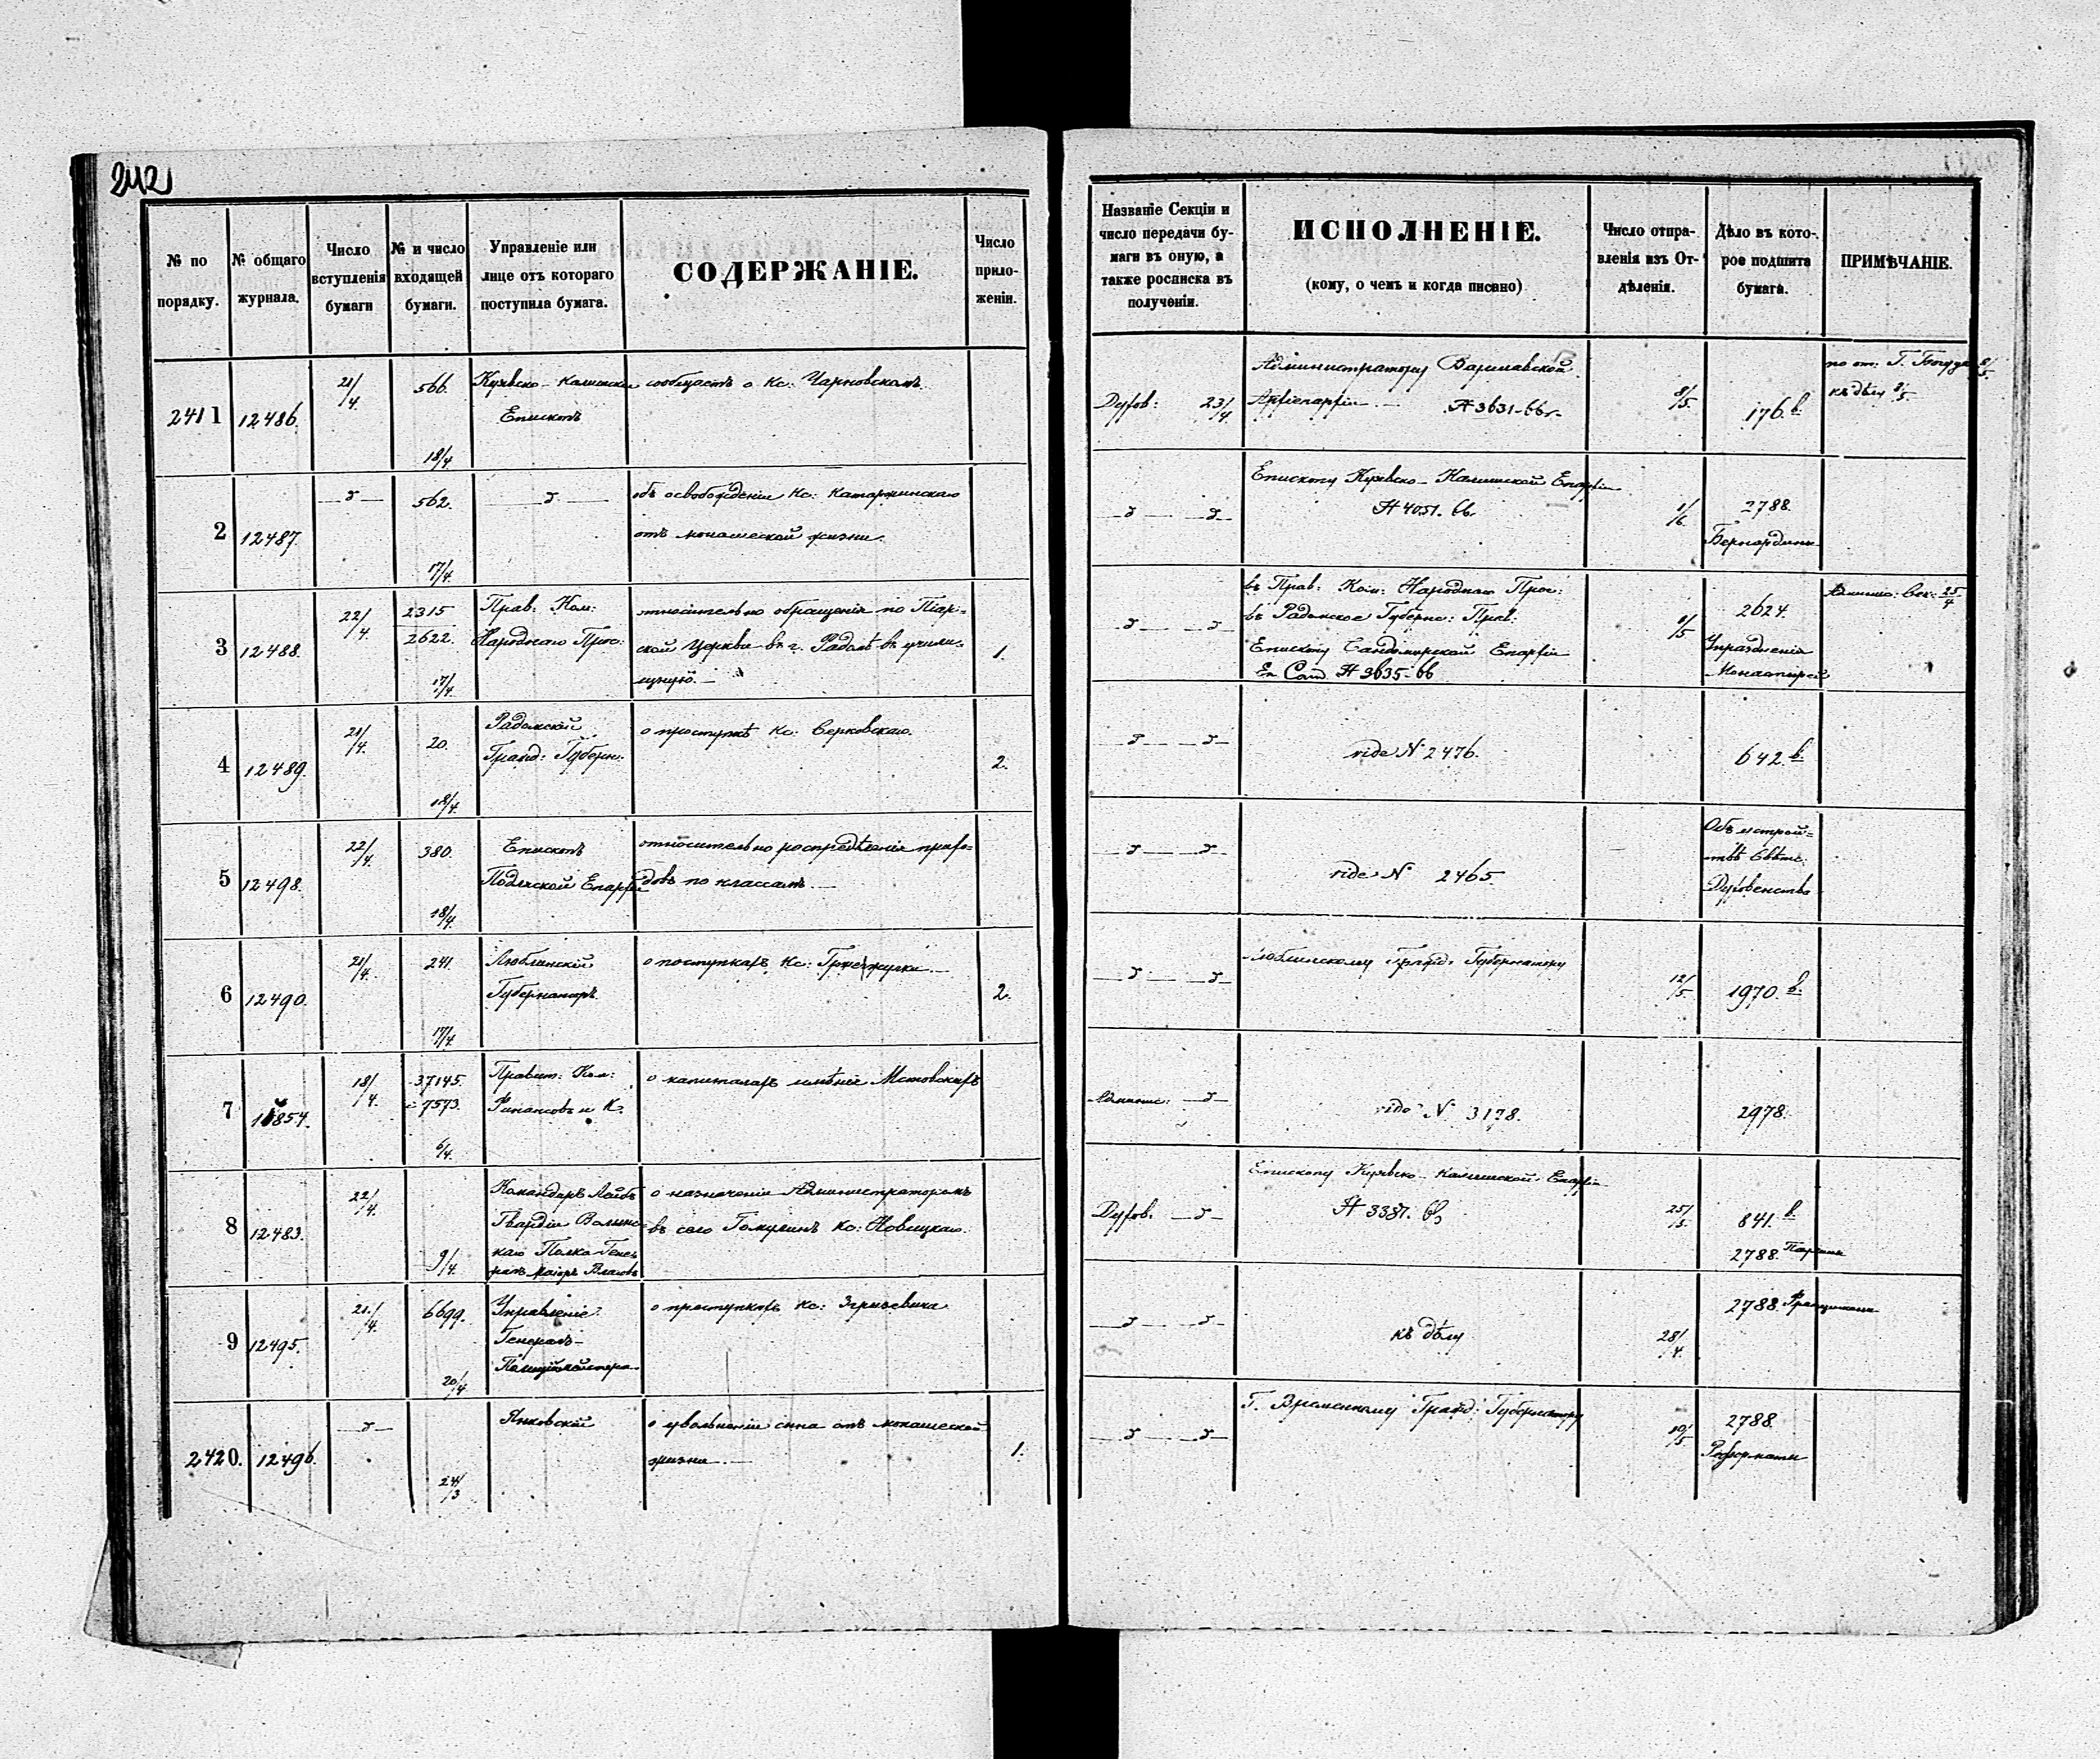 242
№ по порядку.
№ общаго журнала.
Число вступленія бумаги
№ и число входящей бумаги.
Управленіе или лице отъ котораго поступила бумага.
СОДЕРЖАНІЕ.
Число приложеніи.
Названіе Секціи и число передачи бумаги въ оную, а также росписка въ полученіи.
ИСПОЛНЕНІЕ.
(кому, о чемъ и когда писано)
Число отправленія изъ Отдѣленія.
Дѣло въ которое подшита бумага.
ПРИМѢЧАНІЕ.
2411 12486. 21/4. 566. 18/4
Куявско-Калишскій
Епископъ
сообщаетъ о Кс: Чарновскомъ.
Духов: 23/4
Администратору Варшавской
Архіепархіи — № 3631-66 г.
8/5. 176 в.
къ дѣлу 8/5
2 12487. —„— 562. 17/4.
—„—
объ освобожденіи Кс: Катаржинскаго
отъ монашеской жизни.
—„— —„—
Епископу Куявско-Калишской Епархіи
№ 4051. 66.
1/6 2788.
Бернардины
3 12488. 22/4. 2315
2622. 17/4.
Прав: Ком:
Народнаго Прос:
относительно обращенія по Піар-
ской Церкви въ г. Радомѣ въ учили-
1.
—„— —„—
въ Прав: Ком: Народнаго Прос:
въ Радомское Губернс: Прав:
Епископу Сандомирской Епархіи
№ 3635-66
8/5 2624.
Упраздненія
Монастырей
Админис: Сек: 25/4
4 12489. 21/4. 20. 18/4.
Радомскій
Гражд: Губерн:
о проступкѣ Кс: Серковскаго.
2.
—„— —„—
vide № 2476.
642. в.
5 12498. 22/4. 380. 18/4.
Епископъ
Подляской Епархіи
относительно распредѣленія прихо-
довъ по классамъ. —
—„— —„—
vide № 2465.
Объ устрой-
ствѣ Свѣтс:
Духовенства
6 12490. 21/4. 241. 17/4.
Люблинскій
Губернаторъ.
о поступкахъ Кс:
2.
—„— —„—
Люблинскому Гражд: Губернатору
12/5. 1970. в.
7 11854. 18/4. 37145.
7573. 6/4.
Правит: Ком:
Финансовъ и К.
о капиталахъ имѣнія Мстовскихъ
Админис: —„—
vide № 3178.
2978.
8 12483. 22/4. 9/4.
Командиръ Лейбъ
Гвардіи Волынс-
каго Полка Гене-
ралъ Маіоръ Власовъ
о назначеніи Администраторомъ
въ село Гомулинъ Кс: Новицкаго.
Духов. —„—
Епископу Куявско-Калишской Епархіи
№ 3387. 66
25/5. 841. в
2788.
9 12495. 21/4. 6699. 20/4
Управленіе
Генералъ-
Полицiймейстера.
о проступкахъ Кс: Згризевича
—„— —„—
къ дѣлу
28/4. 2788. Францишкане
2420. 12496. —„— 24/3
Янковскій
о увольненіи сына отъ монашеской
жизни. —
1.
—„— —„—
Г. Временному Гражд: Губернатору
10/5 2788.
Реформаты